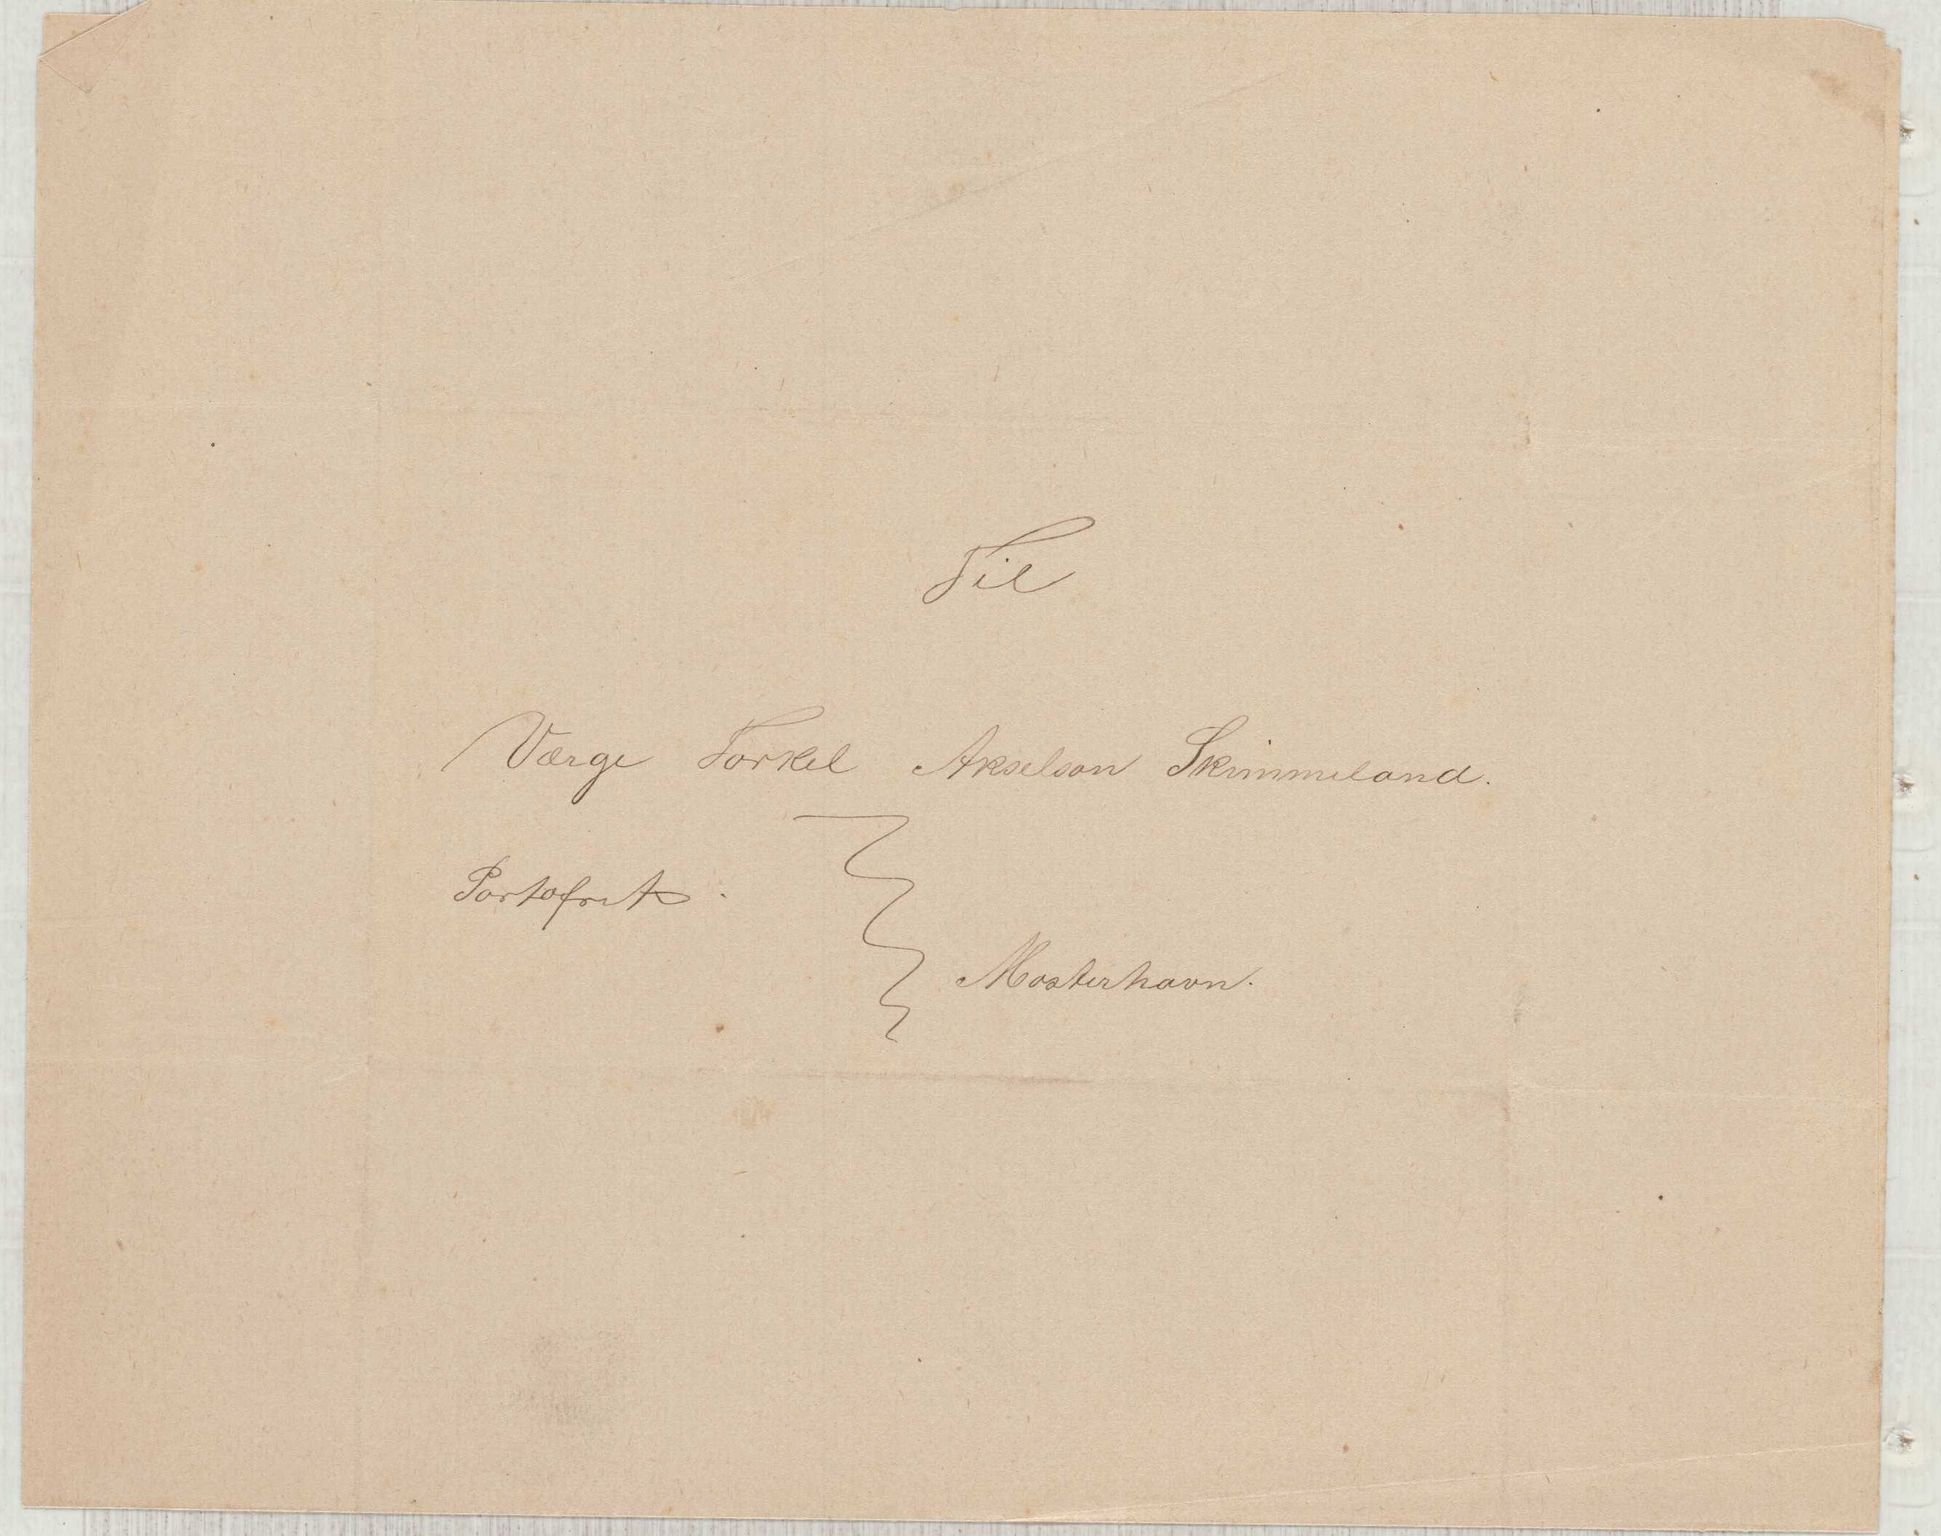 Til
Værge Torkel Akselson Skimmeland.
Portofrit.
Mosterhavn.